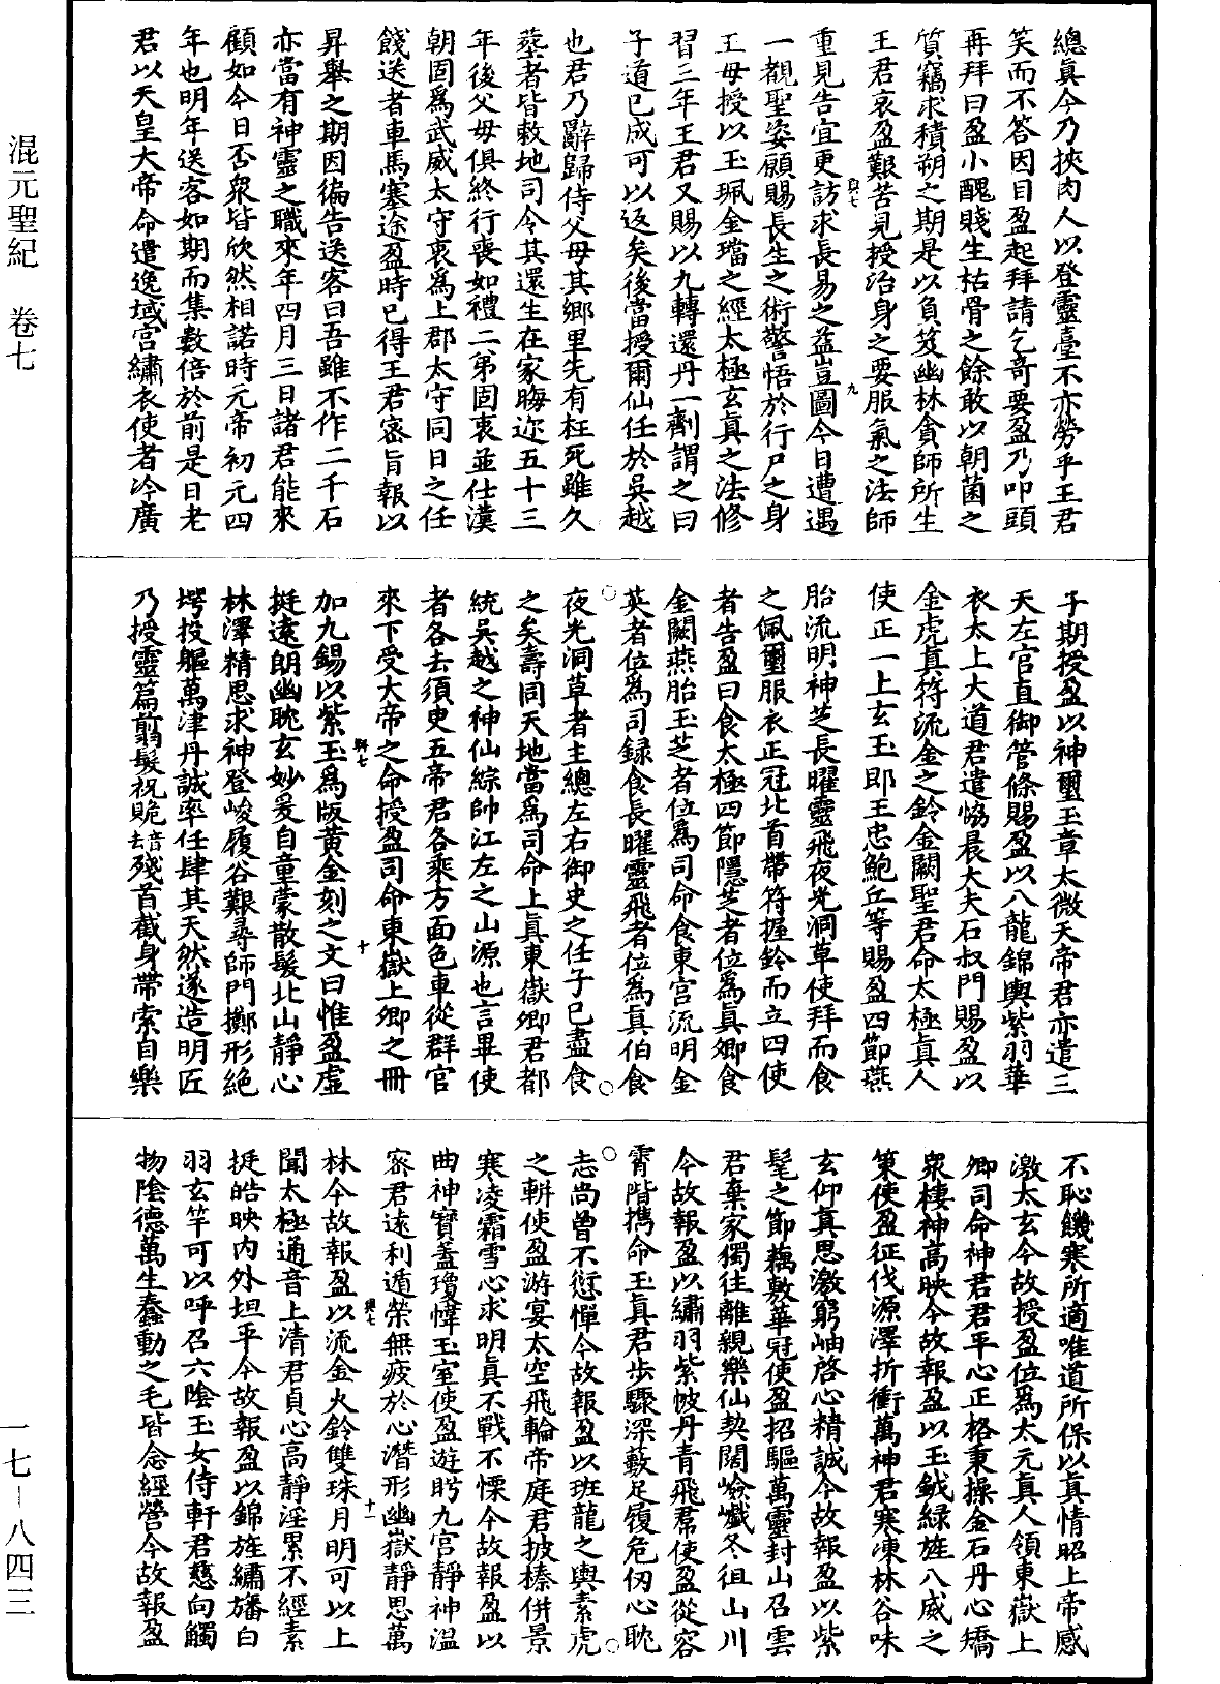 總真今乃挾肉人以登靈臺不亦勞乎王君
笑而不答因目盈起拜請乞奇要盈乃叩頭
再拜曰盈小醜賤生枯骨之餘敢以朝菌之
質竊求積朔之期是以負笈幽林貪師所生
王君哀盈艱苦見授治身之要服氣之法師
重見告宜更訪求長易之益豈圖今日遭遇
一覩聖姿願賜長生之術警悟於行尸之身
王母授以玉珮金璫之經太極玄真之法修
習三年王君又賜以九轉還丹一劑謂之曰
子道已成可以返矣後當授爾仙任於吳越
也君乃辭歸侍父母其鄉里先有枉死雖久
葬者皆敕地司令其還生在家晦迹五十三
年後父母俱終行喪如禮二弟固衷並仕漢
朝固為武威太守衷為上郡太守同日之任
餞送者車馬塞途盈時已得王君密旨報以
昇舉之期因徧告送客曰吾雖不作二千石
亦當有神靈之職來年四月三日諸君能來
顧如今日否眾皆欣然相諾時元帝初元四
年也明年送客如期而集數倍於前是日老
君以天皇大帝命遣逸域宮繡衣使者冷廣
子期授盈以神璽玉章太微天帝君亦遣三
天左官直御管條賜盈以八龍錦輿紫羽華
衣太上大道君遣恊晨大夫石叔門賜盈以
金虎真符流金之鈴金闕聖君命太極真人
使正一上玄玉郎王忠鮑丘等賜盈四節燕
胎流明神芝長曜靈飛夜光洞草使拜而食
之佩璽服衣正冠北首帶符握鈴而立四使
者告盈曰食太極四節隱芝者位為真卿食
金闕燕胎玉芝者位為司命食東宮流明金
英者位為司録食長曜靈飛者位為真伯食
夜光洞草者主總左右御史之任子已盡食
之矣壽同天地當為司命上真東嶽卿君都
統吳越之神仙綜帥江左之山源也言畢使
者各去須臾五帝君各乘方面色車從群官
來下受大帝之命授盈司命東嶽上卿之冊
加九錫以紫玉為版黃金刻之文曰惟盈虛
挺遠朗幽眈玄妙爰自童蒙散髮北山靜心
林澤精思求神登峻履谷艱尋師門擲形絕
塄投軀萬津丹誠率任肆其天然遂造明匠
乃授靈篇翦髮祝賉音去殘首截身帶索自樂
不恥饑寒所適唯道所保以真情昭上帝感
激太玄今故授盈位為太元真人領東嶽上
卿司命神君君平心正格秉操金石丹心矯
眾棲神高映今故報盈以玉鉞綠旌八威之
策使盈征伐源澤折衝萬神君寒凍林谷味
玄仰真思激窮岫啓心精誠今故報盈以紫
髦之節藕敷華冠使盈招驅萬靈封山召雲
君棄家獨往離親樂仙契闊嶮巇冬徂山川
今故報盈以繡羽紫帔丹青飛帬使盈從容
霄階攜命玉真君步驟深藪足履危仞心眈
志尚曾不愆憚今故報盈以班龍之輿素虎
之軿使盈游宴太空飛輪帝庭君披榛併景
寒凌霜雪心求明真不戰不慄今故報盈以
曲神寶蓋瓊幃玉室使盈遊眄九宮靜神溫
密君遠利遁榮無疲於心潛形幽嶽靜思萬
林今故報盈以流金火鈴雙珠月明可以上
聞太極通音上清君貞心高靜淫累不經素
挺皓映內外坦平今故報盈以錦旌繡旛白
羽玄竿可以呼召六陰玉女侍軒君慈向觸
物陰德萬生蠢動之毛皆念經營今故報盈
混元聖紀　卷七
一七—八四三